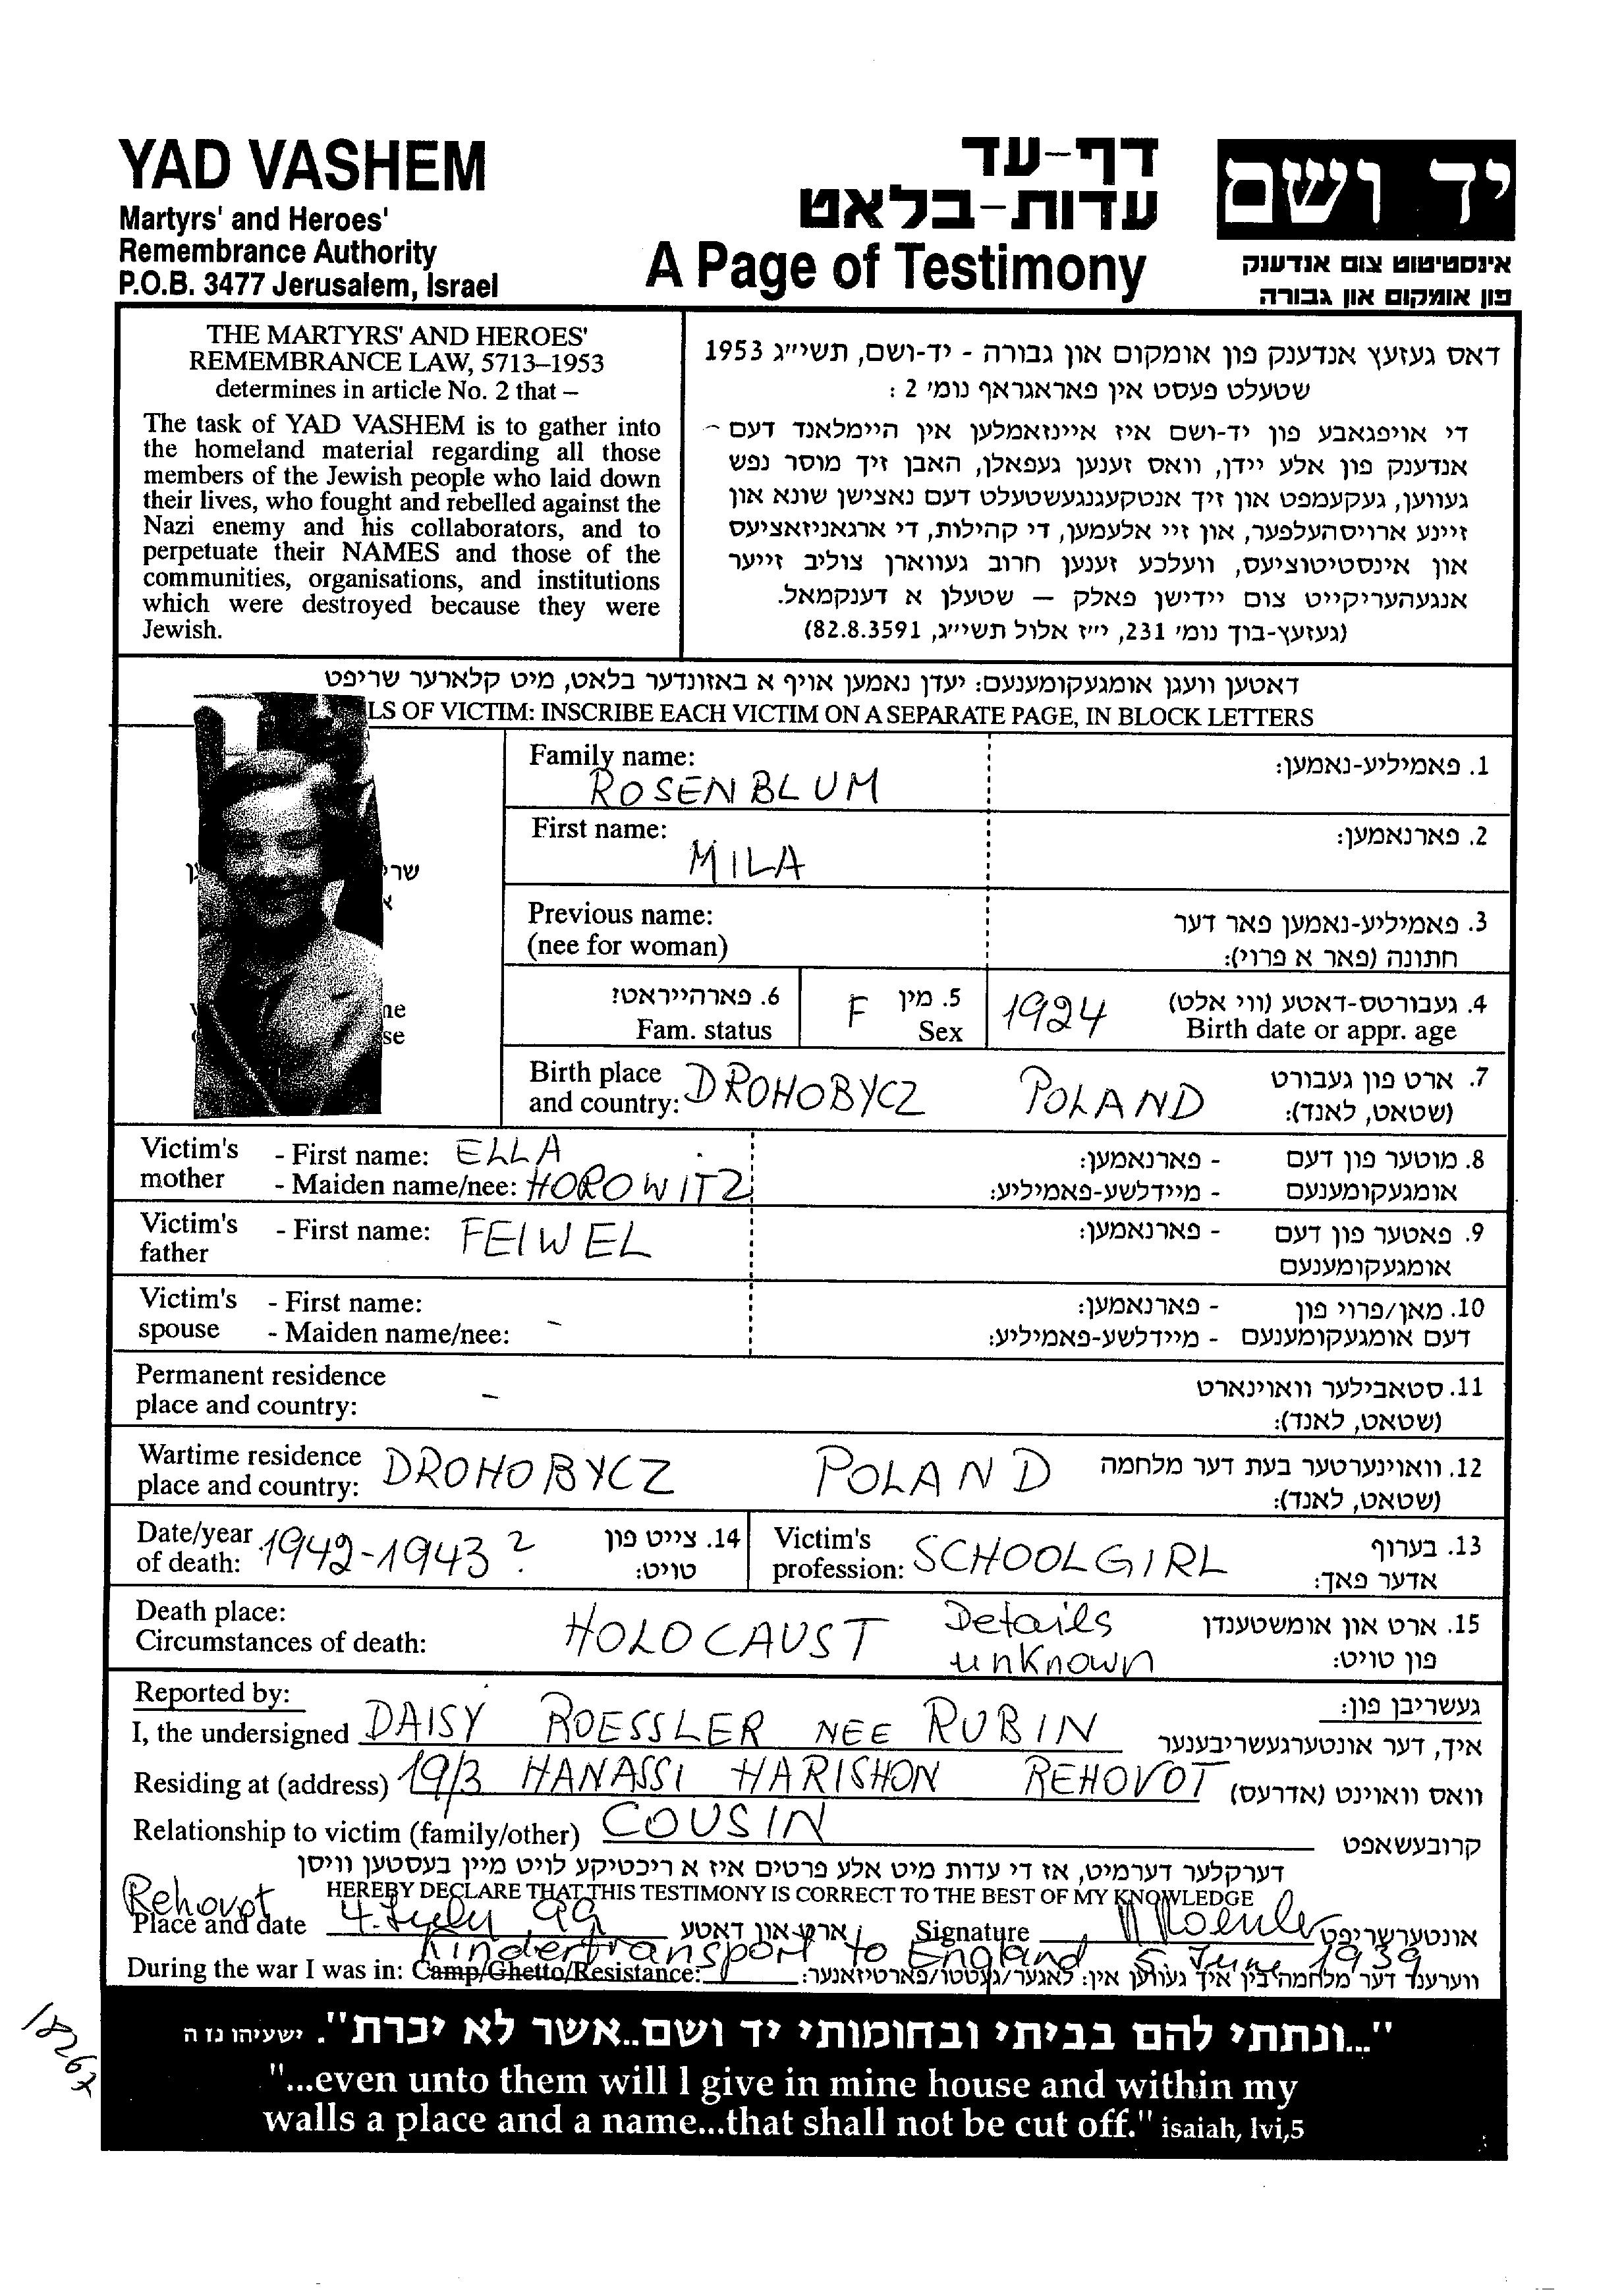 YAD VASHEM
Martyrs' and Heroes'
Remembrance Authority
P.O.B. 3477 Jerusalem, Israel
דף-עד
עדות-בלאט
A Page of Testimony
יד ושם
אינסטיטוט צום אנדענק
פון אומקום און גבורה
THE MARTYRS' AND HEROES'
REMEMBRANCE LAW, 5713–1953
determines in article No. 2 that –
The task of YAD VASHEM is to gather into
the homeland material regarding all those
members of the Jewish people who laid down
their lives, who fought and rebelled against the
Nazi enemy and his collaborators, and to
perpetuate their NAMES and those of the
communities, organisations, and institutions
which were destroyed because they were
Jewish.
דאס געזעץ אנדענק פון אומקום און גבורה - יד-ושם, תשי״ג 1953
שטעלט פעסט אין פאראגראף נומ׳ 2 :
די אויפגאבע פון יד-ושם איז איינזאמלען אין היימלאנד דעם
אנדענק פון אלע יידן, וואס זענען געפאלן, האבן זיך מוסר נפש
געווען, געקעמפט און זיך אנטקעגנגעשטעלט דעם נאצישן שונא און
זיינע ארויסהעלפער, און זיי אלעמען, די קהילות, די ארגאניזאציעס
און אינסטיטוציעס, וועלכע זענען חרוב געווארן צוליב זייער
אנגעהעריקייט צום יידישן פאלק — שטעלן א דענקמאל.
(געזעץ-בוך נומ׳ 231, י״ז אלול תשי״ג, 82.8.3591)
דאטען וועגן אומגעקומענעם: יעדן נאמען אויף א באזונדער בלאט, מיט קלארער שריפט
LS OF VICTIM: INSCRIBE EACH VICTIM ON A SEPARATE PAGE, IN BLOCK LETTERS
Family name: 1. פאמיליע-נאמען:
ROSENBLUM
First name: 2. פארנאמען:
MILA
Previous name: 3. פאמיליע-נאמען פאר דער
(nee for woman) חתונה (פאר א פרוי):
6. פארהייראט? 5. מין 4. געבורטס-דאטע (ווי אלט)
Fam. status F Sex 1924 Birth date or appr. age
Birth place 7. ארט פון געבורט
and country: DROHOBYCZ POLAND (שטאט, לאנד):
Victim's - First name: ELLA 8. מוטער פון דעם - פארנאמען:
mother - Maiden name/nee: HOROWITZ אומגעקומענעם - מיידלשע-פאמיליע:
Victim's - First name: FEIWEL 9. פאטער פון דעם - פארנאמען:
father אומגעקומענעם
Victim's - First name: 10. מאן/פרוי פון - פארנאמען:
spouse - Maiden name/nee: – דעם אומגעקומענעם - מיידלשע-פאמיליע:
Permanent residence 11. סטאבילער וואוינארט
place and country: – (שטאט, לאנד):
Wartime residence 12. וואוינערטער בעת דער מלחמה
place and country: DROHOBYCZ POLAND (שטאט, לאנד):
Date/year 14. צייט פון Victim's 13. בערוף
of death: 1942-1943? טויט: profession: SCHOOLGIRL אדער פאך:
Death place: Details 15. ארט און אומשטענדן
Circumstances of death: HOLOCAUST unknown פון טויט:
Reported by: געשריבן פון:
I, the undersigned DAISY ROESSLER NEE RUBIN איך, דער אונטערגעשריבענער
Residing at (address) 19/3 HANASSI HARISHON REHOVOT וואס וואוינט (אדרעס)
Relationship to victim (family/other) COUSIN קרובעשאפט
דערקלער דערמיט, אז די עדות מיט אלע פרטים איז א ריכטיקע לויט מיין בעסטען וויסן
HEREBY DECLARE THAT THIS TESTIMONY IS CORRECT TO THE BEST OF MY KNOWLEDGE
Rehovot
Place and date 4. July 99 ארט און דאטע Signature אונטערשריפט
Kindertransport to England 5. June 1939
During the war I was in: Camp/Ghetto/Resistance: ווערענד דער מלחמה בין איך געווען אין: לאגער/געטטו/פארטיזאנער:
18267
"...ונתתי להם בביתי ובחומותי יד ושם...אשר לא יכרת". ישעיהו נז ה
"...even unto them will I give in mine house and within my
walls a place and a name...that shall not be cut off." isaiah, lvi,5